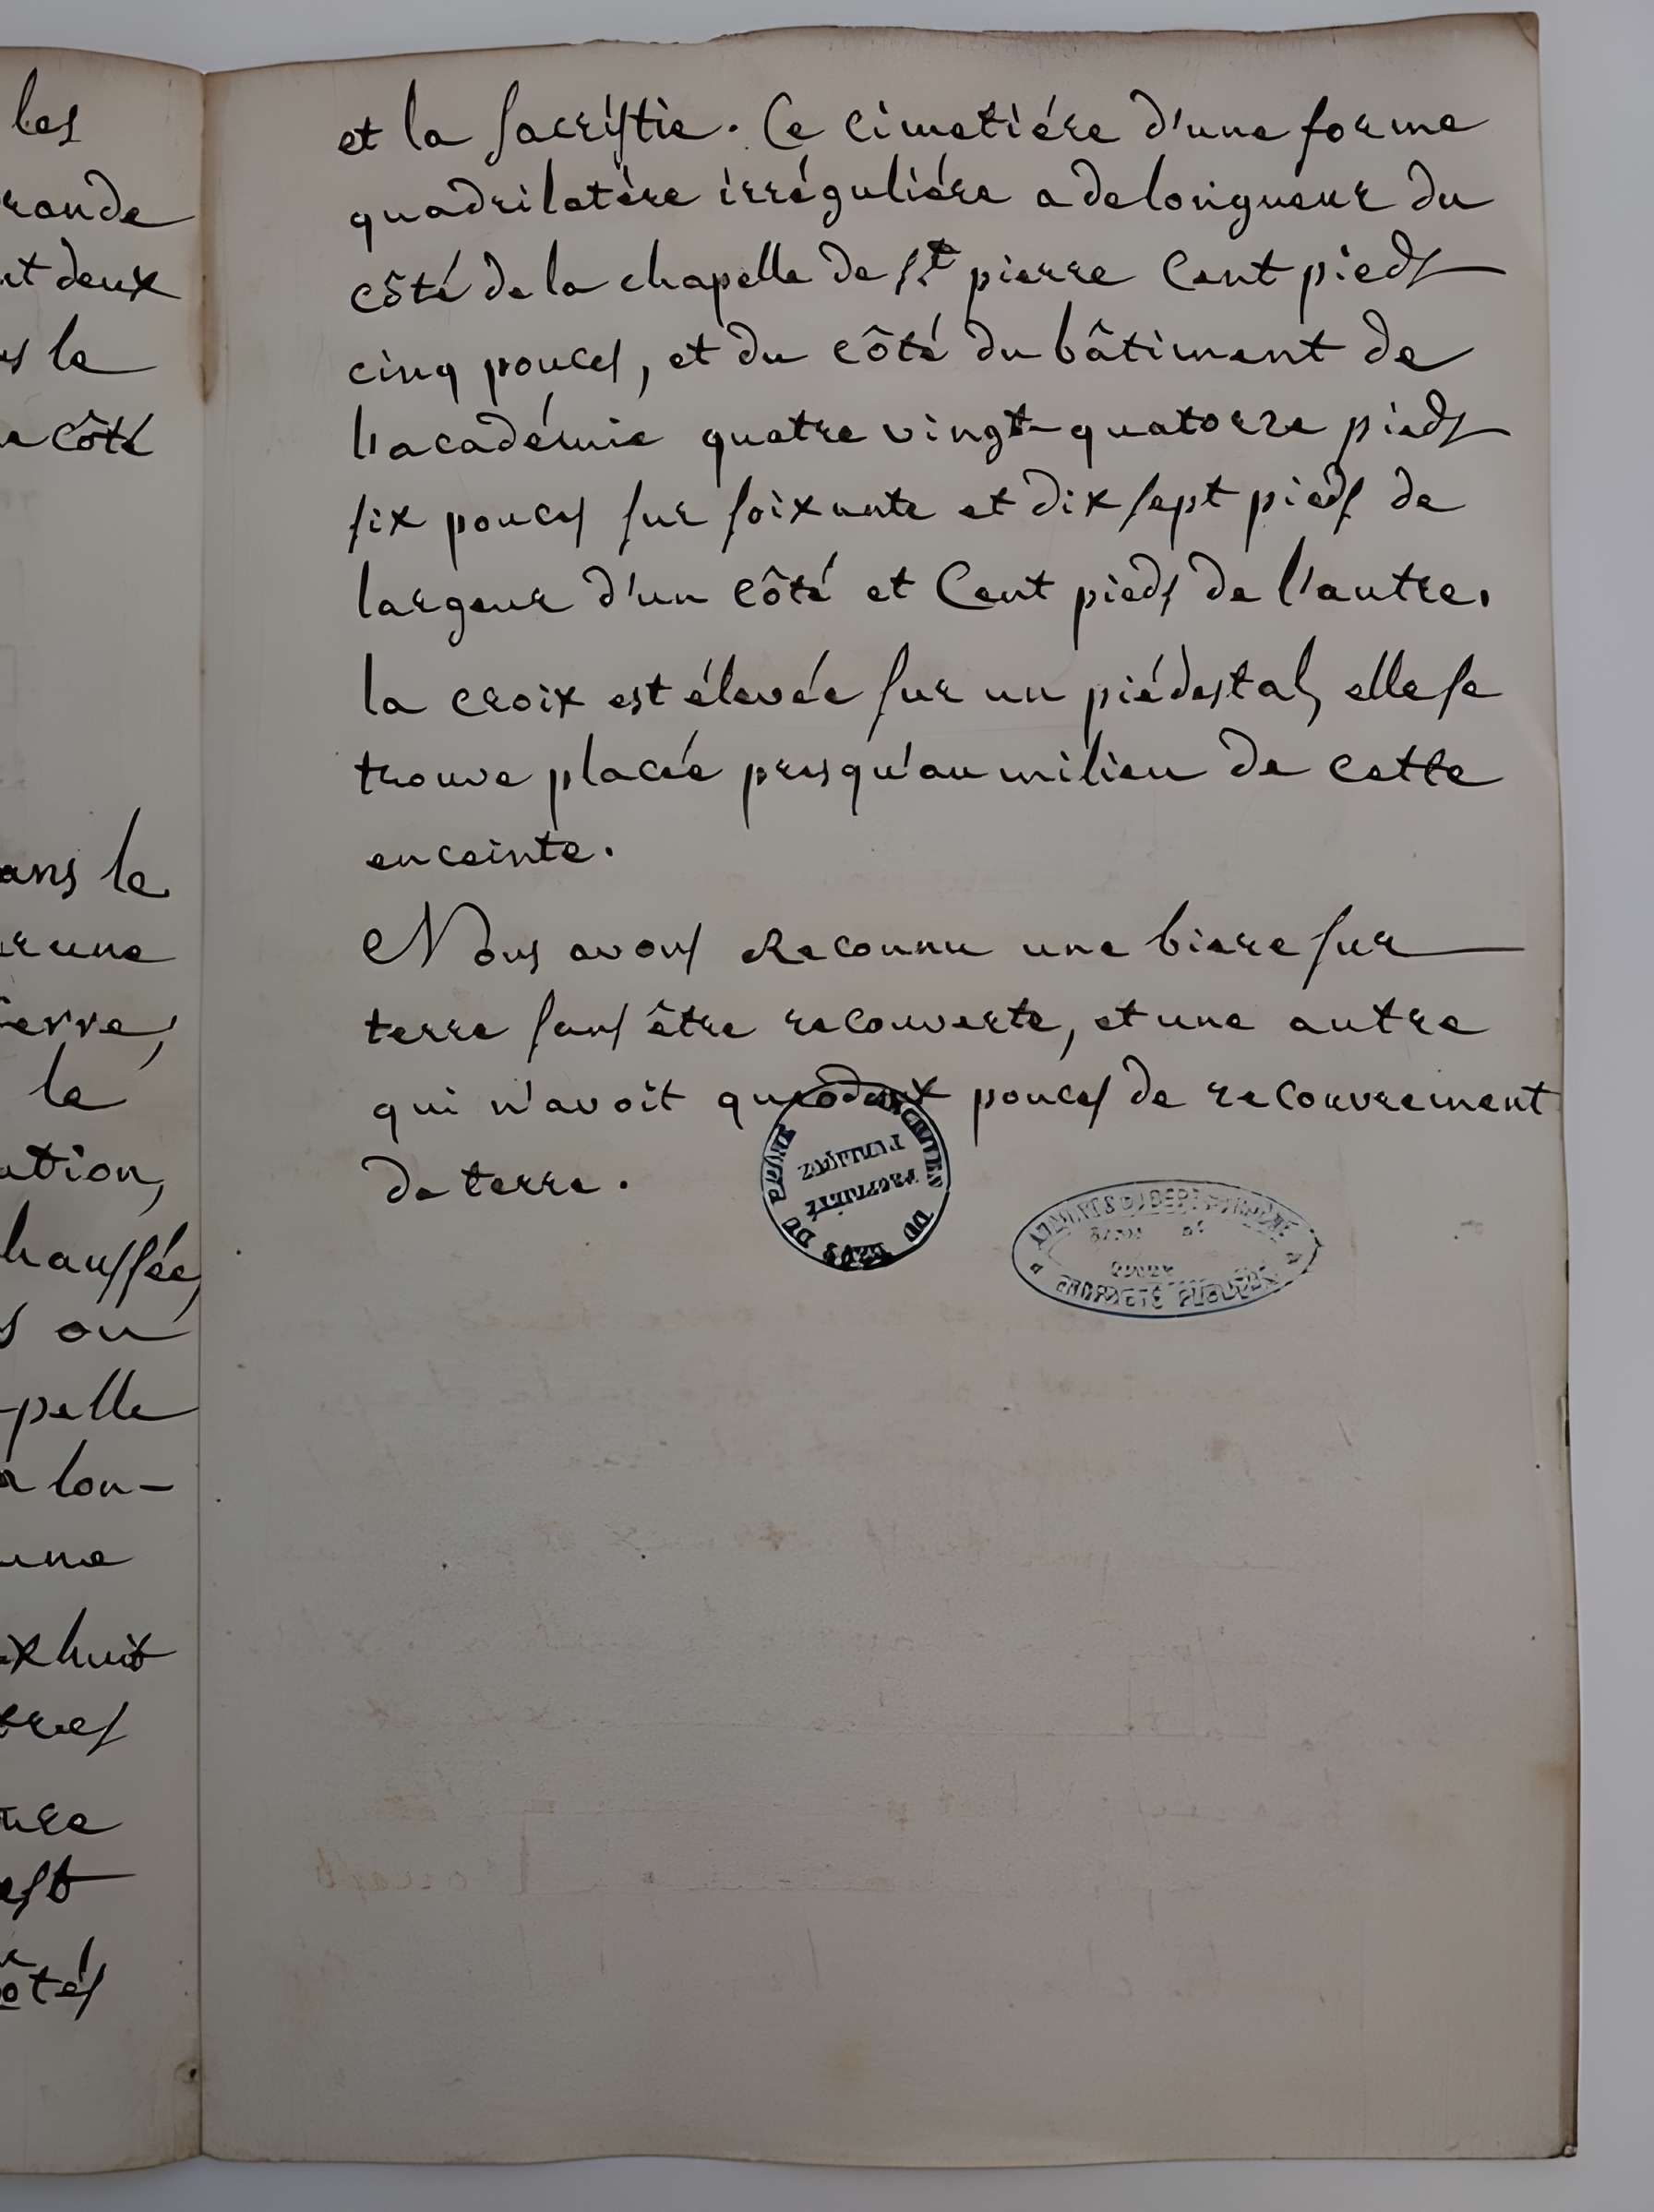 les
rande
nt deux
s le
e côté
ans le
r une
ierre,
le
ation,
hauſſée,
s ou
pelle
a lon-
une
ix huit
tres
ure
est
côtés
et la sacristie. Ce cimetiére d'une forme
quadrilatère irréguliére a de longueur du
côté de la chapelle de St pierre Cent pieds
cinq pouces, et du côté du bâtiment de
l'académie quatre vingt quatorze pieds
six pouces sur soixante et dix sept pieds de
largeur d'un côté et Cent pieds de l'autre.
la croix est élevée sur un piédestal, elle se
trouve placée presqu'au milieu de cette
enceinte.
Nous avons Reconnu une biere sur
terre sans être recouverte, et une autre
qui n'avoit que deux pouces de recouvrement
de terre.